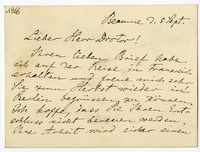 1366
Beaune d. 5 Sept.
Lieber Herr Doctor!
Ihren lieben Brief habe
ich auf der Reise in Frankreich
erhalten und freue mich sehr
Sie zum Herbst wieder in
Berlin begrüssen zu können.
Ich hoffe, dass Sie Ihren Ent-
schluss nicht bereuen werden.
Ihre Arbeit wird sicher einen